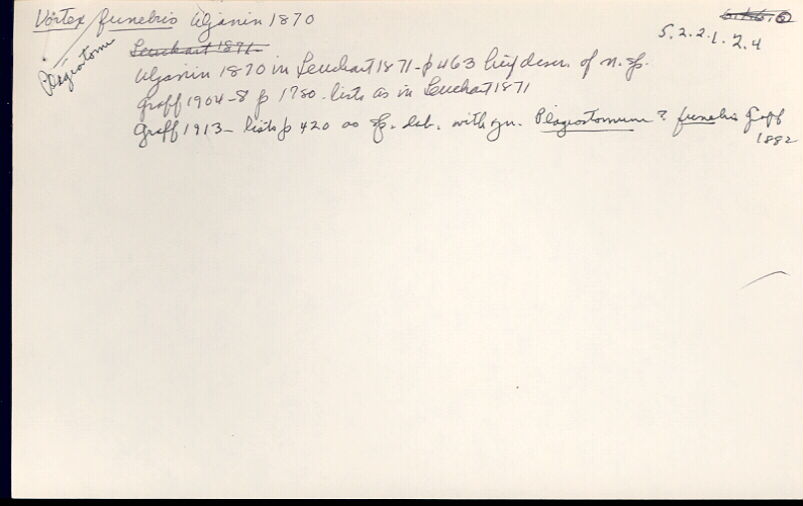 Vortex funebris Uljanin 1870
6.1.6.6
5.2.2.1.2.4
Plagiostom
Leuckart 1871
Uljanin 1870 in Leuckart 1871 - p 463 brief descr. of n. sp.
Graff 1904-8 p 1780. lists as in Leuckart 1871
Graff 1913 - lists p 420 as sp. dub. with syn. Plagiostomum ? funebris Graff
1882